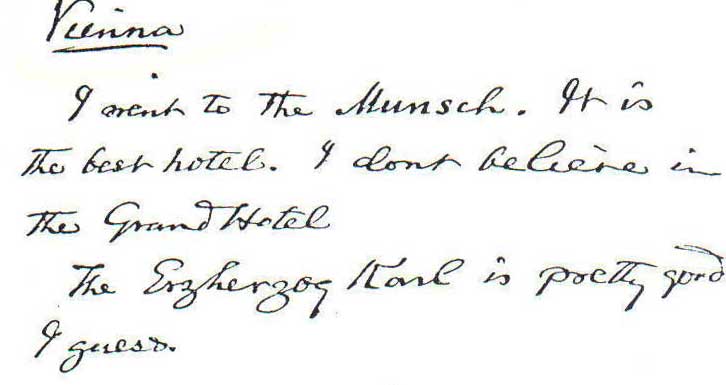 Vienna
I went to the Munsch. It is
the best hotel. I dont believe in
the Grand Hotel
The Erzherzog Karl is pretty good
I guess.